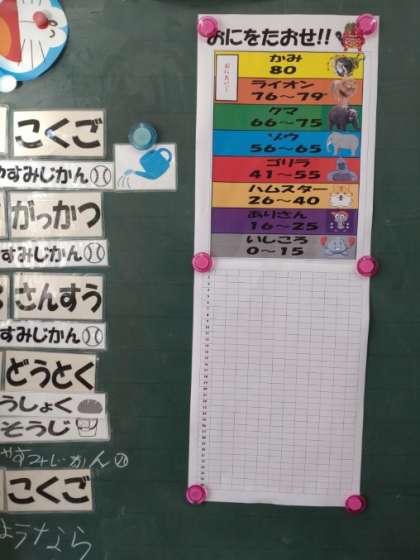 こくご
すみじかん
がっかつ
すみじかん
さんすう
すみじかん
どうとく
うしょく
そうじ
やすみじかん
こくご
ようなら
おにをたおせ!!
かみ
80
ライオン
76～79
クマ
66～75
ゾウ
56～65
ゴリラ
41～55
ハムスター
26～40
ありさん
16～25
いしころ
0～15